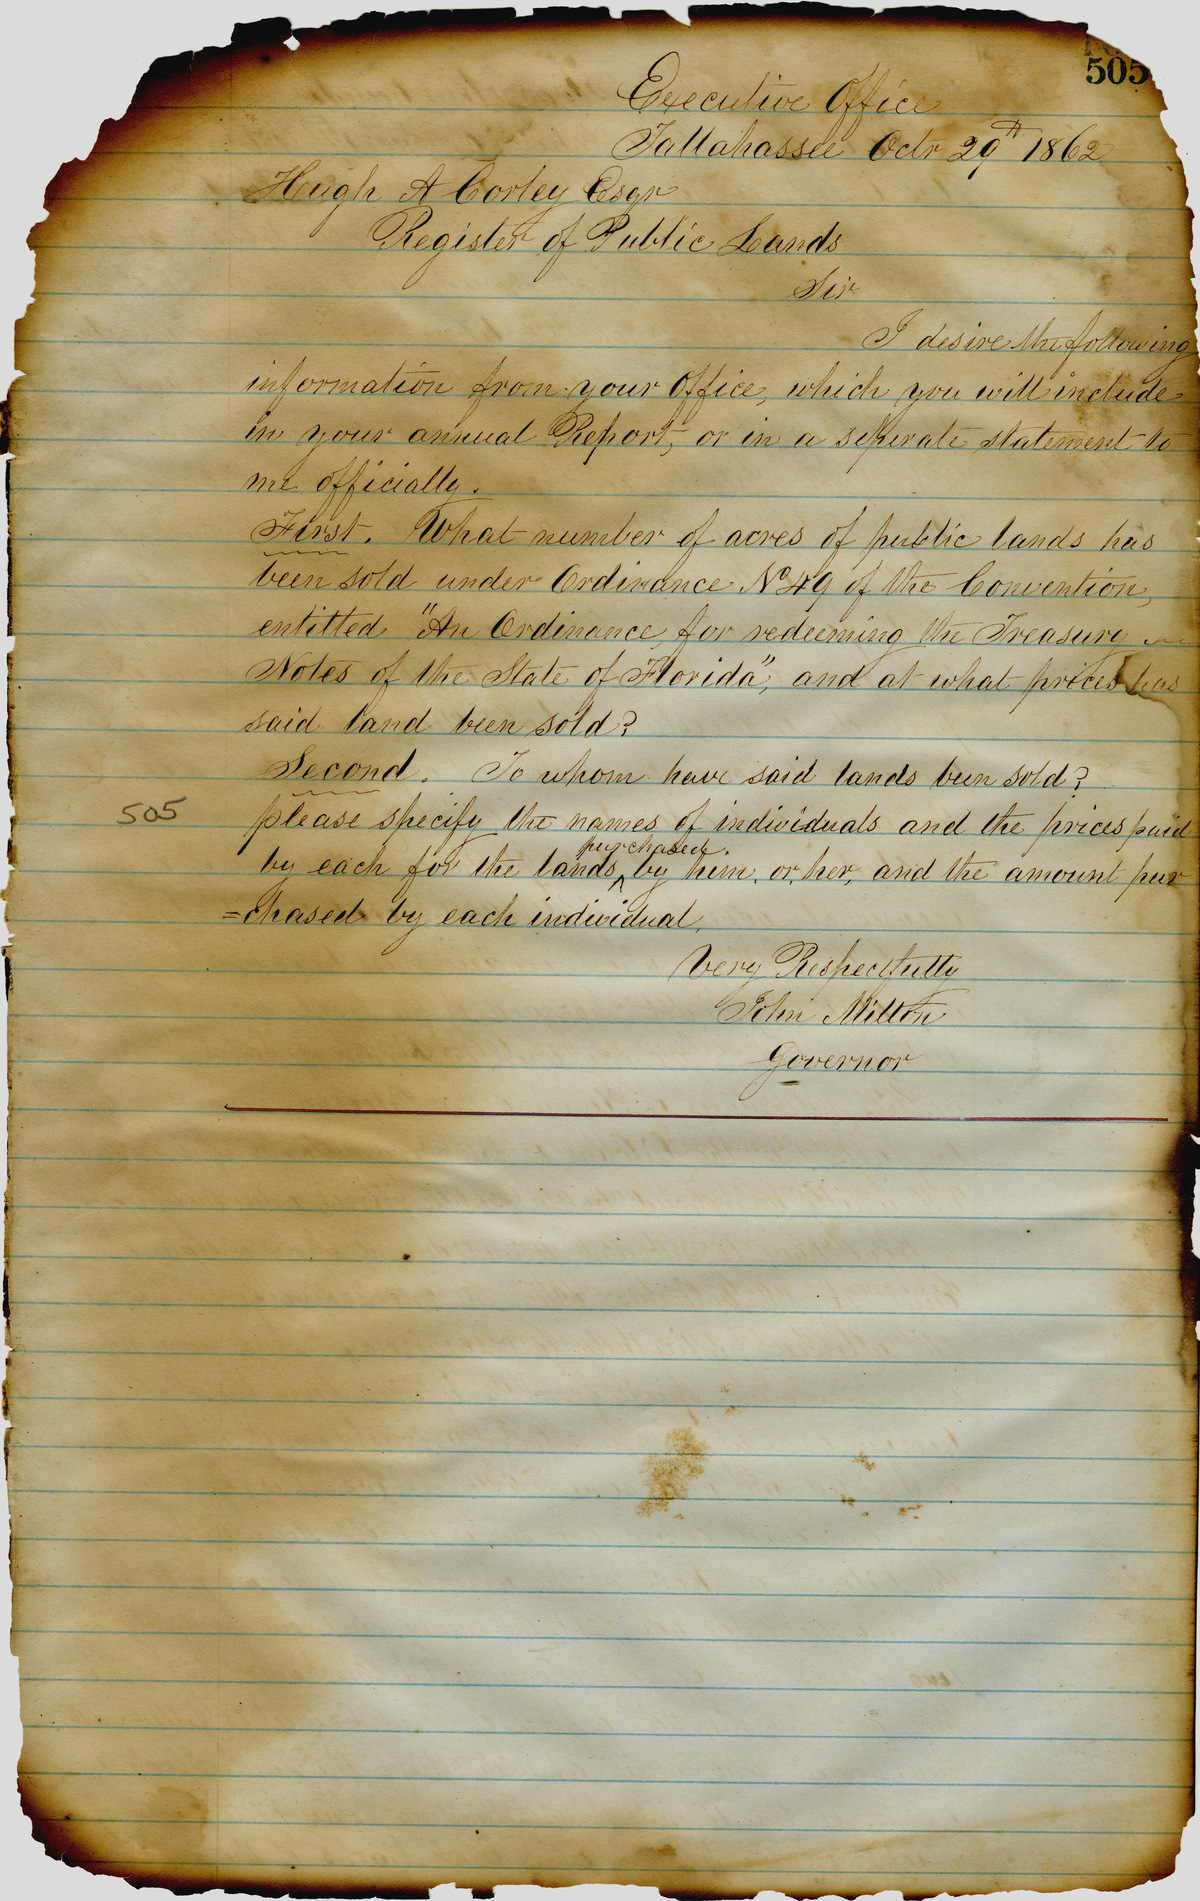 505
Executive Office
Tallahassee Octr 29th 1862
Hugh A Corley Esqr
Register of Public Lands
Sir
I desire the following
information from your office, which you will include
in your annual Report, or in a seperate statement to
me officially.
First. What number of acres of public lands has
been sold under Ordinance No 49 of the Convention,
entitled "An Ordinance for redeeming the Treasury
Notes of the State of Florida", and at what prices has
said land been sold?
Second. To whom have said lands been sold?
505
please specify the names of individuals and the prices paid
purchased
by each for the lands ^ by him or her, and the amount pur
=chased by each individual.
Very Respectfully
John Milton
Governor